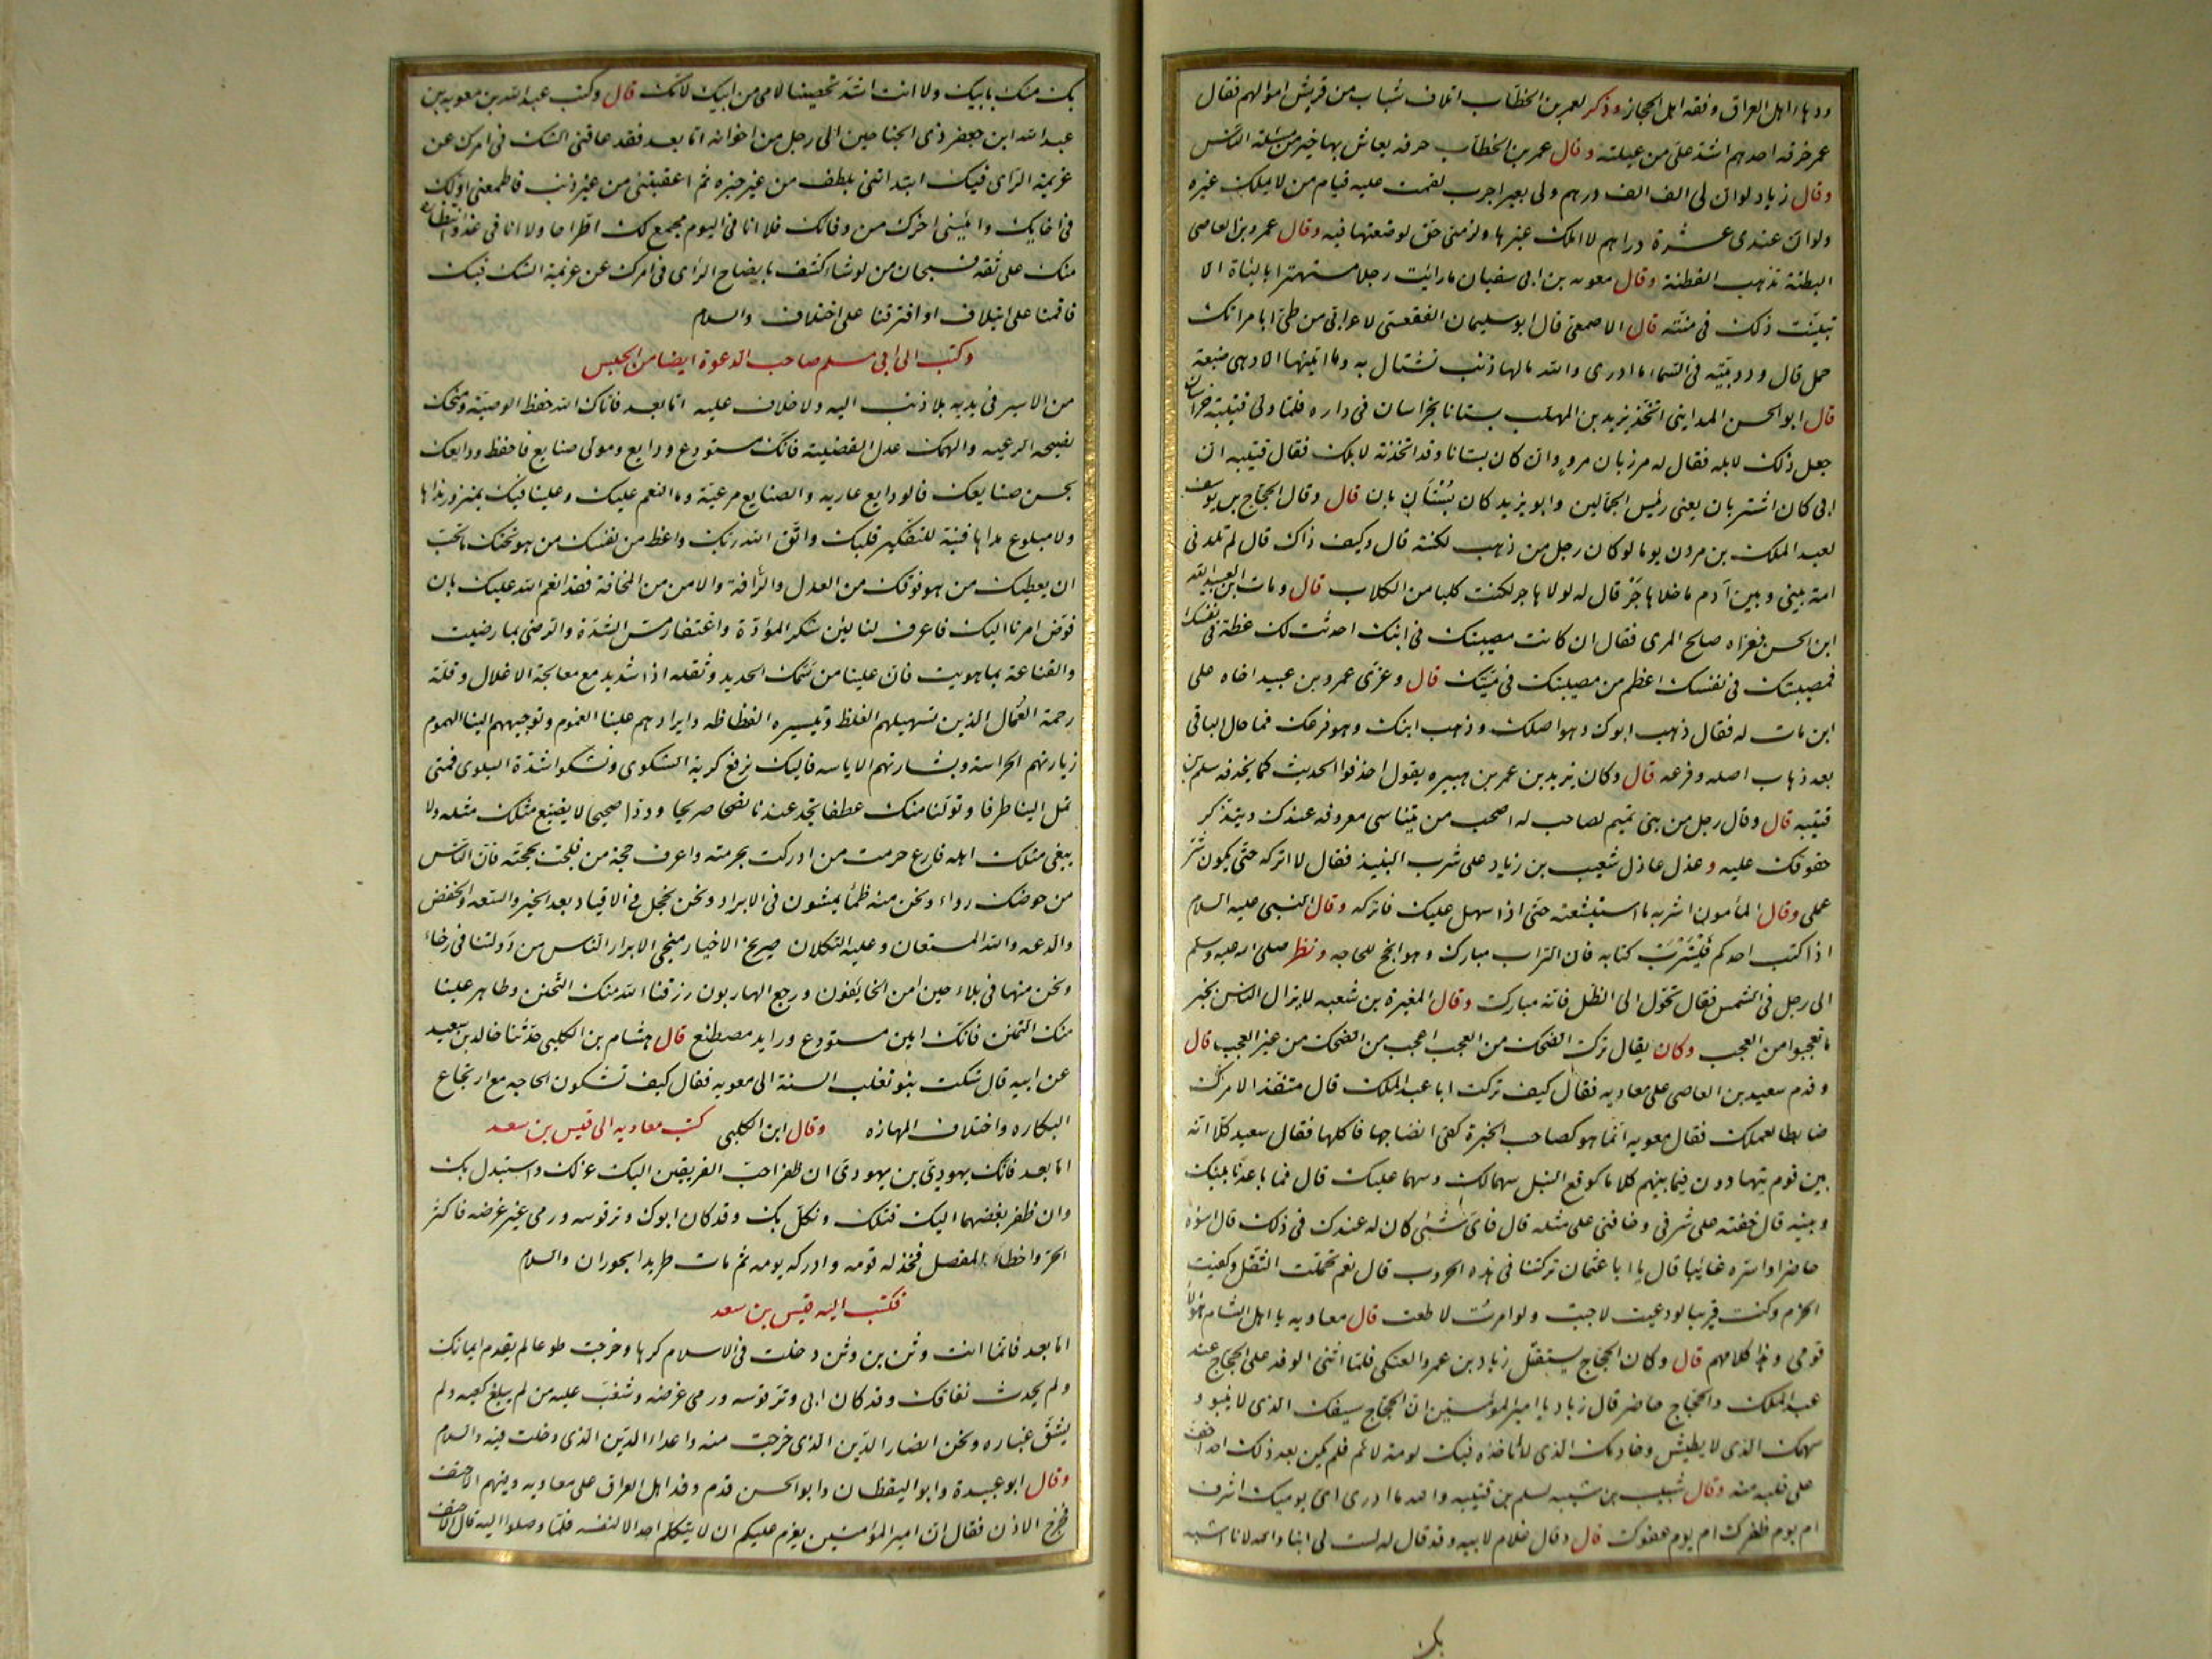 ودهاء اهل العراق وفقه اهل الحجاز وذكر لعمر بن الخطاب اتلاف شباب من قريش اموالهم فقال
عمر حرفه احدهم اشد على من عيلته وقال عمر بن الخطاب حرفه يعاش بها خير من مسئلة الناس
وقال زياد لو ان لى الف الف درهم ولى بعير اجرب لقمت عليه قيام من لا يملك غيره
ولو ان عندى عشرة دراهم لا املك غيرها ولزمنى حق لوضعتها فيه وقال عمرو بن العاصى
البطنة تذهب الفطنة وقال معويه بن ابى سفيان ما رايت رجلا مستهترا بالباءة الا
تبينت ذلك فى منته قال الاصمعى قال ابو سليمان الفقعسى لاعرابى من طى ابامراتك
حمل قال وذو بيته فى السماء ما ادرى والله مالها ذنب تشتال به وما اتيتها الا وهى ضبعة
قال ابو الحسن المداينى اتخذ يزيد بن المهلب بستانا بخراسان فى داره فلما ولى قتيبة خراسان
جعل ذلك لابله فقال له مرزبان مرو وان كان بستانا وقد اتخذته لابلك فقال قتيبه ان
ابى كان اشتربان يعنى رئيس الجمالين وابو يزيد كان بستان بان قال وقال الحجاج بن يوسف
لعبد الملك بن مروان يوما لو كان رجل من ذهب لكنته قال وكيف ذاك قال لم تلدنى
امة بينى وبين آدم ما خلا هاجر قال له لولا هاجر لكنت كلبا من الكلاب قال ومات ابن لعبيد الله
ابن الحسن فعزاه صالح المرى فقال ان كانت مصيبتك فى ابنك احدثت لك عظة فى نفسك
فمصيبتك فى نفسك اعظم من مصيبتك فى ميتك قال وعزى عمرو بن عبيد اخاه على
ابن مات له فقال ذهب ابوك وهو اصلك وذهب ابنك وهو فرعك فما حال الباقى
بعد ذهاب اصله وفرعه قال وكان يزيد بن عمر بن هبيره يقول احذفوا الحديث كما يحذفه سلم بن
قتيبه قال وقال رجل من بنى تميم لصاحب له اصحب من يتناسى معروفه عندك ويتذكر
حقوقك عليه وعذل عاذل شعيب بن زياد على شرب النبيذ فقال لا اتركه حتى يكون شر
عملى وقال المأمون اشربه ما استبشعته حتى اذا سهل عليك فاتركه وقال النبى عليه السلام
اذا كتب احدكم فليترب كتابه فان التراب مبارك وهو انجح للحاجه ونظر صلى الله عليه وسلم
الى رجل فى الشمس فقال تحول الى الظل فانه مبارك وقال المغيرة بن شعبه لا يزال الناس بخير
ما تعجبوا من العجب وكان يقال ترك الضحك من العجب اعجب من الضحك من غير العجب قال
وقدم سعيد بن العاصى على معاويه فقال كيف تركت ابا عبد الملك قال منفذا لامرك
ضابطا لعملك فقال معويه انما هو كصاحب الخبزة كفى انضاجها فاكلها فقال سعيد كلا انه
بين قوم يتهادون فيما بينهم كلاما كوقع النبل سهما لك وسهما عليك قال فما باعد بينك
وبينه قال خفته على شرفى وخافنى على مثله قال فاى شئ كان له عندك فى ذلك قال اسؤه
حاضرا واسره غائبا قال يا ابا عثمان تركتنا فى هذه الحروب قال نعم تحملت الثقل وكفيت
الحزم وكنت قريبا لو دعيت لاجبت ولو امرت لاطعت قال معاويه يا اهل الشام هؤلاء
قومى وهذا كلامهم قال وكان الحجاج يستثقل زياد بن عمرو العتكى فلما اثنى الوفد على الحجاج عند
عبد الملك والحجاج حاضر قال زياد يا امير المؤمنين ان الحجاج سيفك الذى لا ينبو و
سهمك الذى لا يطيش وخادمك الذى لا تاخذه فيك لومة لائم فلم يكن بعد ذلك احد اخف
على قلبه منه وقال شبيب بن شيبه لسلم بن قتيبه والله ما ادرى اى يوميك اشرف
ام يوم ظفرك ام يوم عفوك قال وقال غلام لابيه وقد قال له لست لى ابنا والله لانا اشبه
بك
بك منك بابيك ولا انت اشد تحصينا لامى من ابيك لامك قال وكتب عبد الله بن معويه بن
عبد الله ابن جعفر ذى الجناحين الى رجل من اخوانه اما بعد فقد عاقنى الشك فى امرك عن
عزيمة الراى فيك ابتداتنى بلطف من غير خبره ثم اعقبتنى من غير ذنب فاطمعنى اولك
فى اخايك وايئسنى اخرك من وفائك فلا انا فى اليوم مجمع لك اطراحا ولا انا فى غد وانتظاره
منك على ثقه فسبحان من لو شاء كشف بايضاح الراى فى امرك عن عزيمة الشك فيك
فاقمنا على ايتلاف او افترقنا على اختلاف والسلام
وكتب الى ابى مسلم صاحب الدعوة ايضا من الحبس
من الاسير فى يديه بلا ذنب اليه ولا خلاف عليه اما بعد فاتاك الله حفظ الوصية ومنحك
نصيحه الرعيه والهمك عدل القضية فانك مستودع ودايع ومولى صنايع فاحفظ ودايعك
بحسن صنايعك فالودايع عاريه والصنايع مرعية وما النعم عليك وعلينا فيك بمنزور نداها
ولا مبلوغ مداها فنبه للتفكير قلبك واتق الله ربك واعط من نفسك من هو تحتك ما تحب
ان يعطيك من هو فوقك من العدل والرأفة والامن من المخافة فقد انعم الله عليك بان
فوض امرنا اليك فاعرف لنا لين شكر المؤدة واغتفار مس الشدة والرضى بما رضيت
والقناعة بما هويت فان علينا من سمك الحديد وثقله اذا شديد مع معالجة الاغلال وقلة
رحمة العمال الذين تسهيلهم الغلظ وتيسيره الفظاظه وايرادهم علينا الغموم وتوجيههم الينا الهموم
زيارتهم الحراسة وبشارتهم الاياسه فاليك نرفع كربة الشكوى ونشكوا شدة البلوى فمتى
تمل الينا طرفا وتولنا منك عطفا تجد عندنا نصحا صريحا وودا صحيحا لا يضيع مثلك مثله ولا
ينفى مثلك اهله فارع حرمت من ادركت بحرمته واعرف حجة من فلجت بحجته فان الناس
من حوضك رواء ونحن منه ظماً يمشون فى الابراد ونحن نحجل فى الاقياد بعد الخير والسعه والخفض
والدعه والله المستعان وعليه التكلان صريخ الاخيار منجى الابرار الناس من دولتنا فى رخاء
ونحن منها فى بلاء حين امن الخايفون ورجع الهاربون رزقنا الله منك التحنن وظاهر علينا
منك التمنن فانك امين مستودع ورايد مصطنع قال هشام بن الكلبى حدثنا خالد بن سعيد
عن ابيه قال شكت بنو تغلب السنة الى معويه فقال كيف تشكون الحاجه مع ارتجاع
البكاره واختلاف المهازه وقال ابن الكلبى كتب معاويه الى قيس بن سعد
اما بعد فانك يهودى بن يهودى ان ظفر احب الفريقين اليك عزلك واستبدل بك
وان ظفر بغضهما اليك قتلك ونكل بك وقد كان ابوك وتر قوسه ورمى غير غرضه فاكثر
الحز واخطاء المفصل فخذله قومه وادركه يومه ثم مات طريدا بحوران والسلام
فكتب اليه قيس بن سعد
اما بعد فانما انت وثن بن وثن دخلت فى الاسلام كرها وخرجت طوعا لم يقدم ايمانك
ولم يحدث نفاقك وقد كان ابى وتر قوسه ورمى غرضه وشغب عليه من لم يبلغ كعبه ولم
يشق غباره ونحن انصار الدين الذى خرجت منه واعداء الدين الذى دخلت فيه والسلام
وقال ابو عبيدة وابو اليقظان وابو الحسن قدم وفد اهل العراق على معاويه وفيهم الاحنف
فخرج الاذن فقال ان امير المؤمنين يعزم عليكم ان لا يتكلم احد الا لنفسه فلما وصلوا اليه قال الاحنف